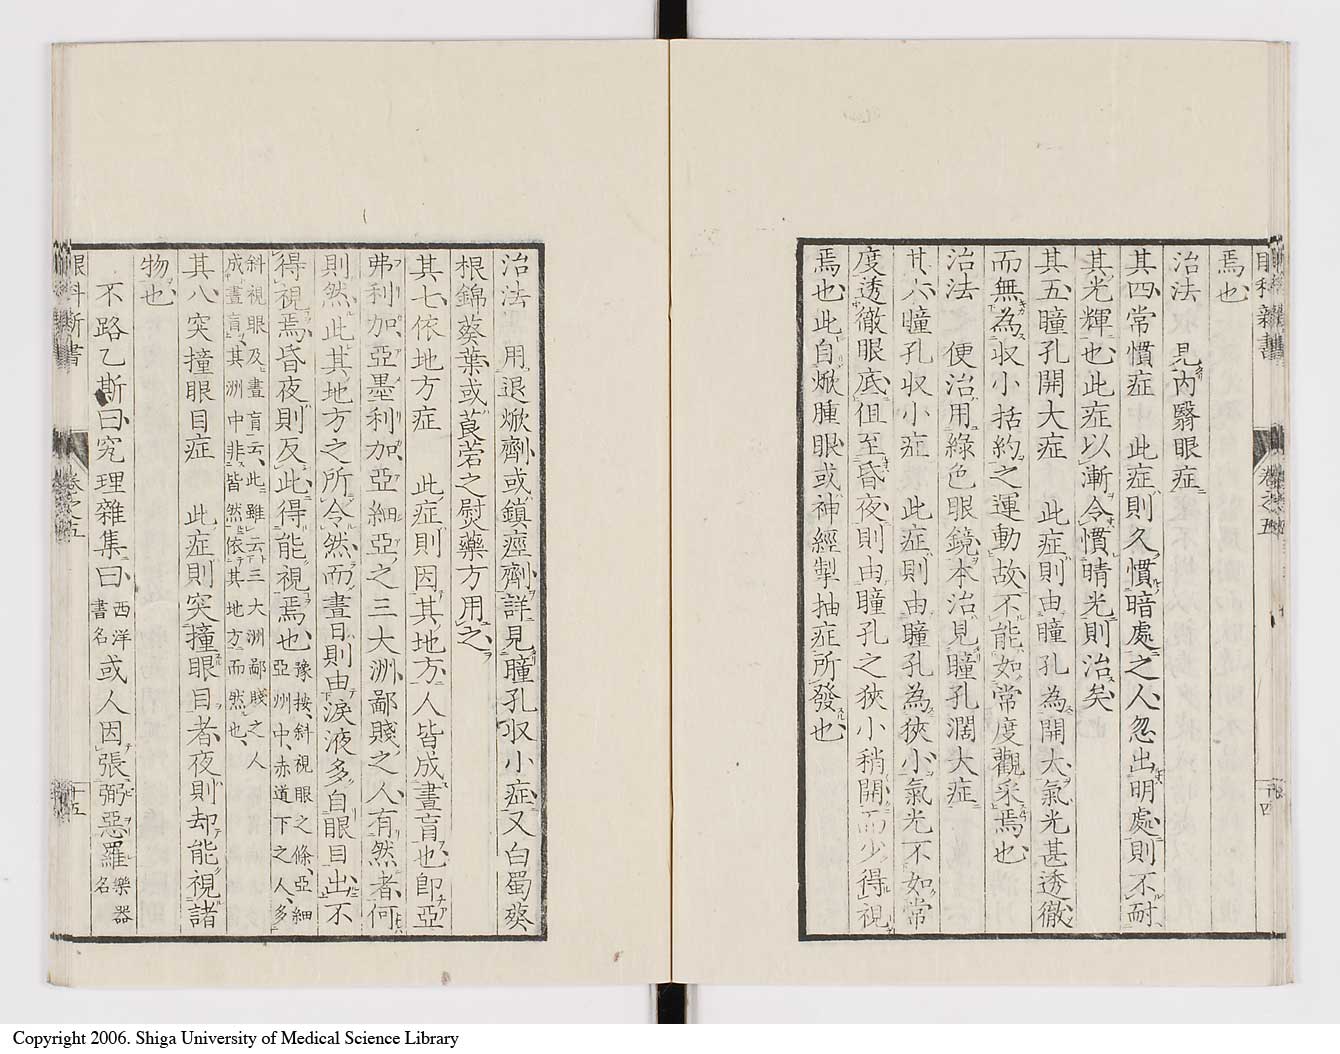 眼科新書 卷之五 十四
焉也
治法 見内翳眼症
其四常慣症 此症則久慣暗處之人忽出明處則不耐
其光輝也此症以漸令慣晴光則治矣
其五瞳孔開大症 此症則由瞳孔為開大氣光甚透徹
而無為収小括約之運動故不能如常度觀采焉也
治法 便治用綠色眼鏡本治見瞳孔濶大症
其六瞳孔収小症 此症則由瞳孔為狹小氣光不如常
度透徹眼底但至昏夜則由瞳孔之狹小稍開而少得視
焉也此自焮腫眼或神經掣抽症所發也
治法 用退焮劑或鎮痙劑詳見瞳孔収小症又白蜀葵
根錦葵葉或莨菪之熨藥方用之
其七依地方症 此症則因其地方人皆成晝盲也即亞
弗利加亞墨利加亞細亞之三大洲鄙賤之人有然者何
則然此其地方之所令然而晝日則由淚液多自眼目出不
得視焉昏夜則反此得能視焉也豫按斜視眼之條亞細亞州中赤道下之人多
斜視眼及晝盲云此雖云三大洲鄙賤之人
成晝盲其洲中非皆然依其地方而然也
其八突撞眼目症 此症則突撞眼目者夜則却能視諸
物也
不路乙斯曰究理雜集曰西洋書名或人因張弸惡羅樂器名
眼科新書 卷之五 十五
Copyright 2006. Shiga University of Medical Science Library